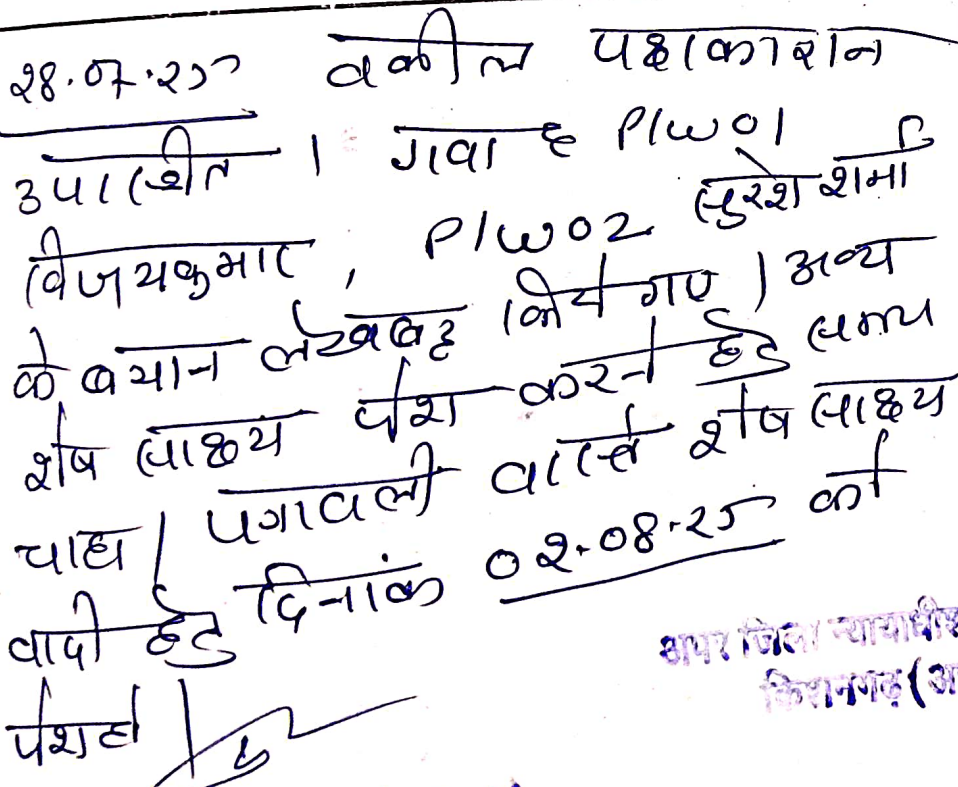 28.07.25 वकील पक्षकारान
उपस्थित । गवाह P/W01
विजयकुमार, P/W02 सुरेश शर्मा
के बयान लेखबद्ध किये गए । अन्य
शेष साक्ष्य पेश करने हेतु समय
चाहा । पत्रावली वास्ते शेष साक्ष्य
वादी हेतु दिनांक 02.08.25 को
पेश हो ।
अपर जिला न्यायाधीश
किशनगढ़ (अ